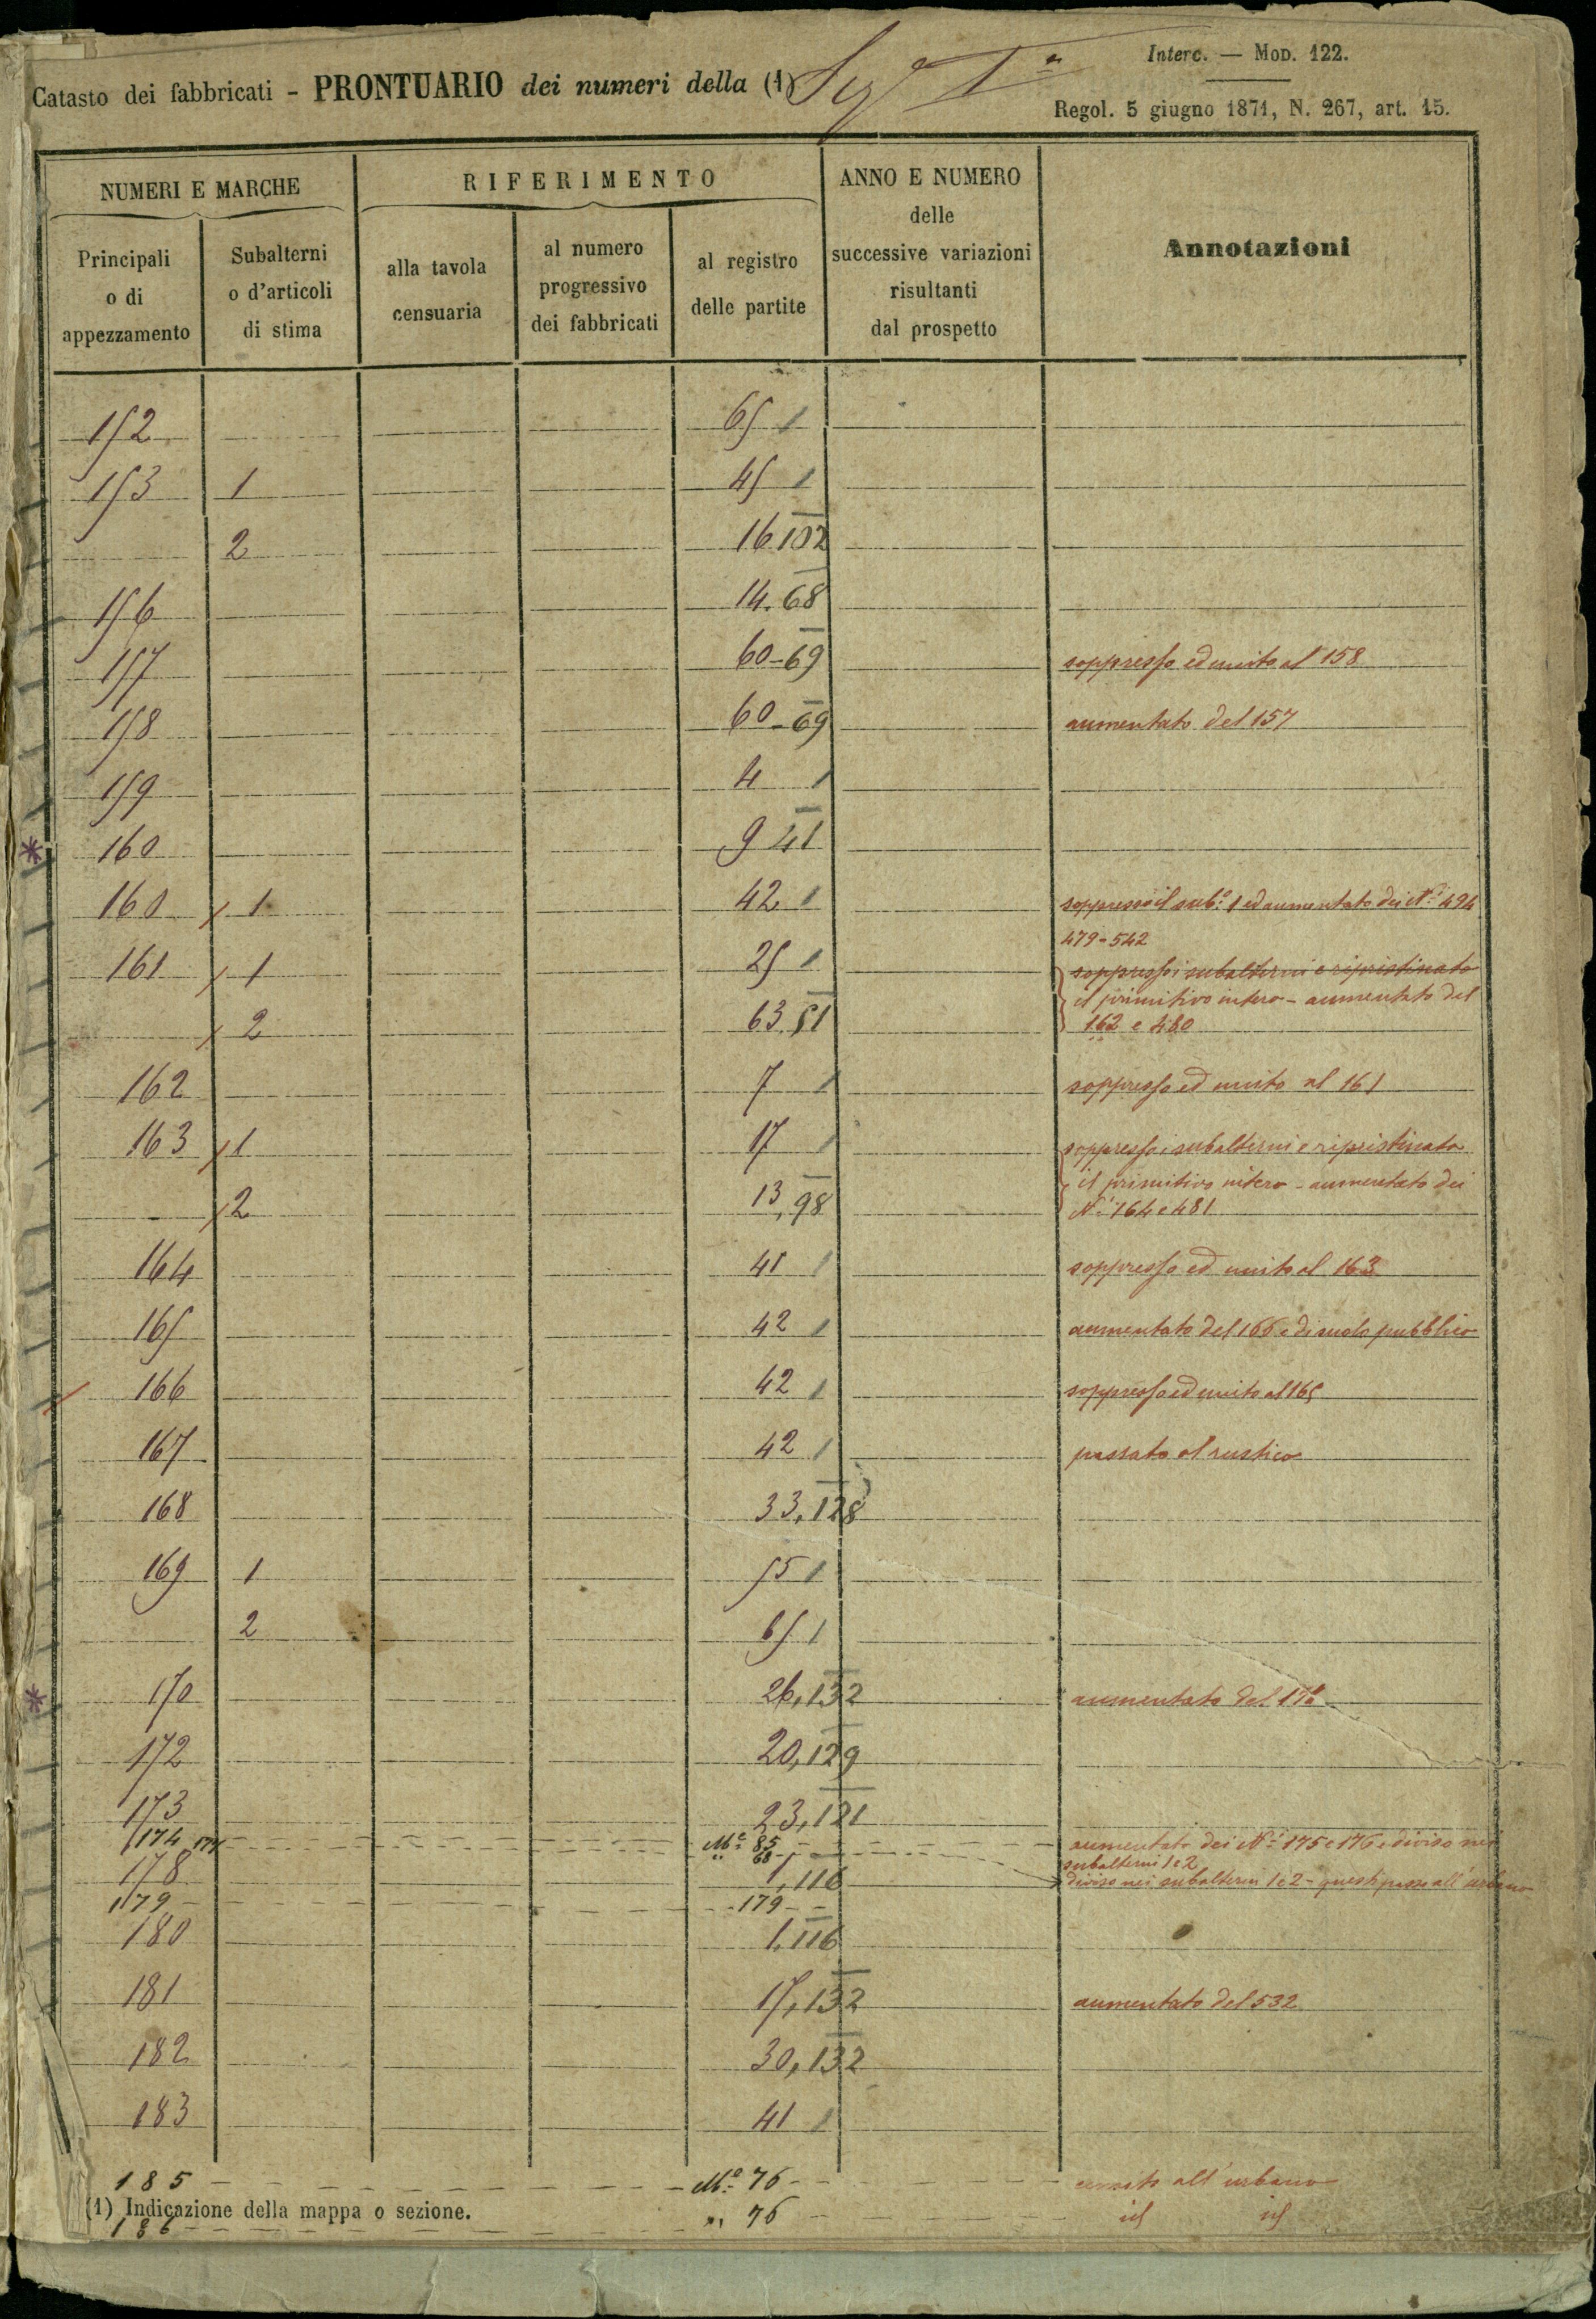 Interc. — Mod. 122.
Catasto dei fabbricati - PRONTUARIO dei numeri della (1) Sez.e 1a
Regol. 5 giugno 1871, N. 267, art. 15.
NUMERI E MARCHE
RIFERIMENTO
ANNO E NUMERO
delle
successive variazioni
risultanti
dal prospetto
Annotazioni
Principali
o di
appezzamento
Subalterni
o d'articoli
di stima
alla tavola
censuaria
al numero
progressivo
dei fabbricati
al registro
delle partite
152 65 /
153 1 45 /
2 16.102
156 14.68
157 60-69 soppresso ed unito al 158
158 60-69 aumentato del 157
159 4 /
160 9 41
160 1 42 / soppresso il sub.o 1 ed aumentato dei N.i 494
479-542
161 1 25 / soppressi i subalterni e ripristinato
il primitivo intero - aumentato del
2 63.51 162 e 480
162 7 / soppresso ed unito al 161
163 1 17 / soppressi i subalterni e ripristinato
2 13,98 il primitivo intero - aumentato dei
N.i 164 e 481
164 41 / soppresso ed unito al 163
165 42 / aumentato del 166 e di suolo pubblico
166 42 / soppresso ed unito al 165
167 42 / passato al rustico
168 33,128
169 1 55 /
2 65 /
170 26,132 aumentato del
172 20,129
173 23,121
174 177 M.e 85 aumentato dei N.i 175 e 176 e diviso nei
" 68 subalterni 1 e 2
178 1,116 diviso nei subalterni 1 e 2 - questi passa all'urbano
179 179
180 1,116
181 17,132 aumentato del 532
182 30,132
183 41 /
185 M.e 76 all'urbano
(1) Indicazione della mappa o sezione.
186 " 76 id id